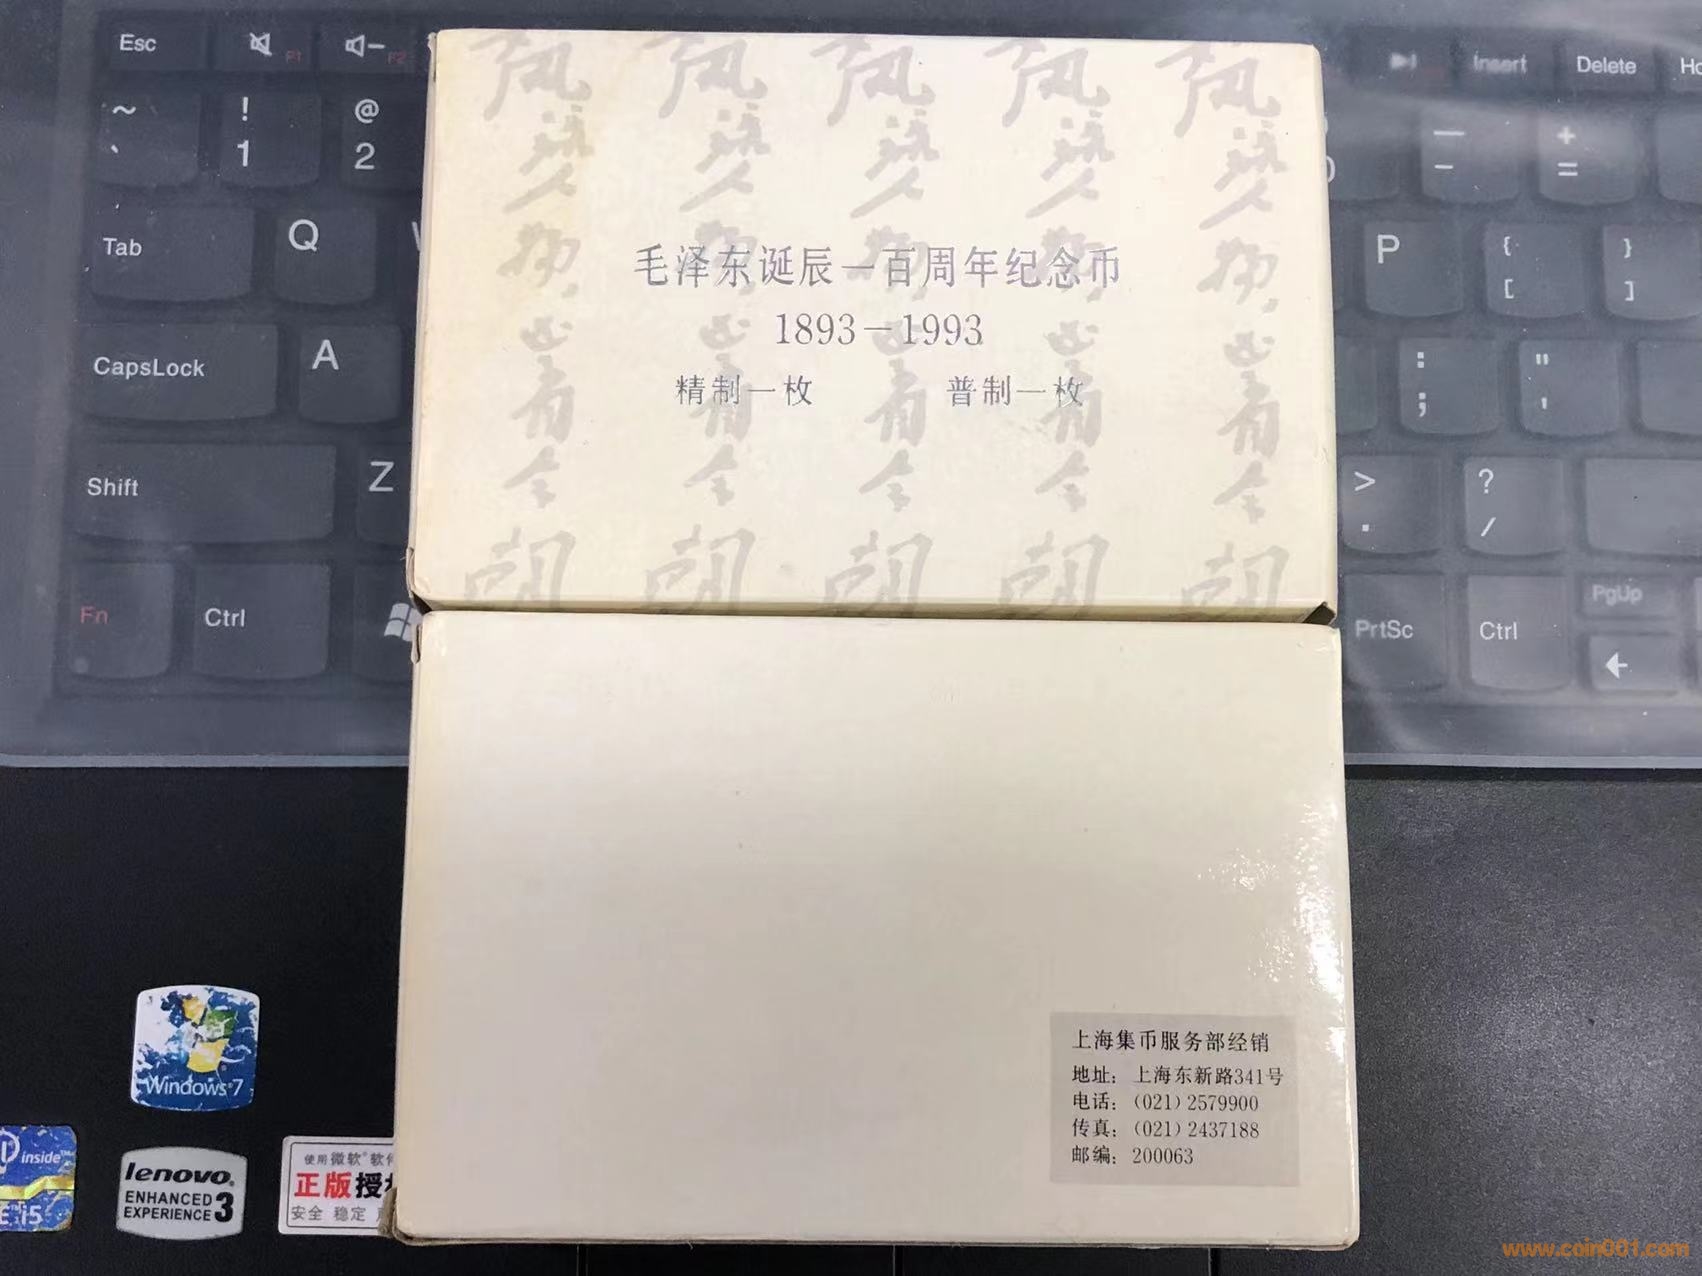 Esc
F1
F2
Insert
Delete
~
`
!
1
@
2
—
-
+
=
Tab
Q
P
{
[
}
]
CapsLock
A
:
;
"
'
Shift
Z
>
.
?
/
Fn
Ctrl
PrtSc
Ctrl
PgUp
风流人物
还看今朝
毛泽东诞辰一百周年纪念币
1893-1993
精制一枚 普制一枚
上海集币服务部经销
地址: 上海东新路341号
电话: (021) 2579900
传真: (021) 2437188
邮编: 200063
Windows 7
inside™
i5
lenovo
ENHANCED
EXPERIENCE 3
使用微软®软件
正版授
安全 稳定
www.coin001.com